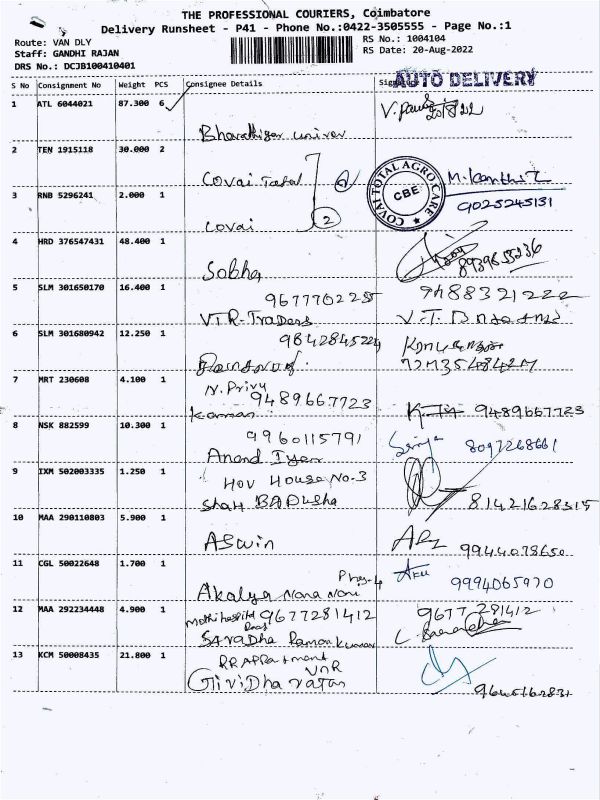 THE PROFESSIONAL COURIERS, Coimbatore
Delivery Runsheet - P41 - Phone No.:0422-3505555 - Page No.:1
Route: VAN DLY
RS No.: 1004104
Staff: GANDHI RAJAN
RS Date: 20-Aug-2022
DRS No.: DCJB100410401
AUTO DELIVERY
S No Consignment No Weight PCS Consignee Details
1 ATL 6044021 87.300 6
Bharathiyar univer
2 TEN 1915118 30.000 2
Covai Total
COVAI TOTAL AGRO CARE
CBE
9025245131
3 RNB 5296241 2.000 1
Covai 2
4 HRD 376547431 48.400 1
Sobha
5 SLM 301650170 16.400 1
VTR-Traders
6 SLM 301680942 12.250 1
9842845224
7 MRT 230608 4.100 1
N. Priya
9489667723
Kannan
9489667723
8 NSK 882599 10.300 1
9960115791
Anand Iyer
8097268661
9 IXM 502003335 1.250 1
HOV HOUSE No-3
Shah BADUSHA
81421628315
10 MAA 290110803 5.900 1
ASwin
9944078650
11 CGL 50022648 1.700 1
9994065970
Akalya
12 MAA 292234448 4.900 1
9677281412
9677281412
SARADHA Ramankumar
13 KCM 50008435 21.800 1
RR APPartment